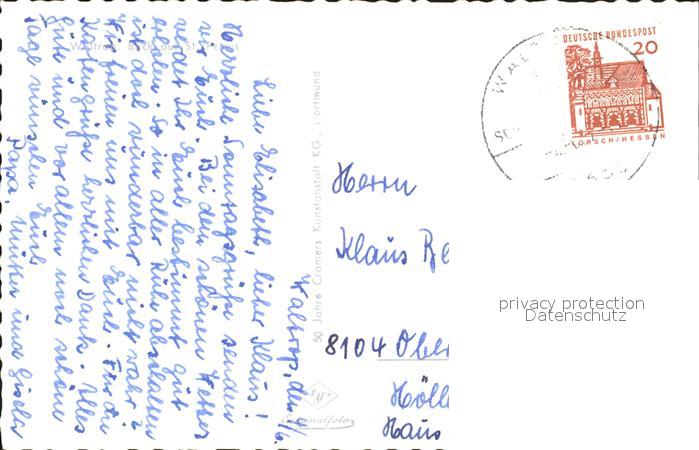 Waltrop, den 1/6.
Liebe Elisabeth, lieber Klaus!
Herzliche Sonntagsgrüße senden
wir Euch. Bei dem schönen Wetter
werdet Ihr Euch bestimmt gut
erholen. So in aller Ruhe abschalten
ist doch wunderbar, nicht wahr?
Wir freuen uns mit Euch. Für die
Kartengrüße herzlichen Dank. Alles
Gute und vor allem noch schöne
Tage wünschen Euch
Papa, Mutter und Gisela
Waltrop
50 Jahre Cramers Kunstanstalt KG., Dortmund
DEUTSCHE BUNDESPOST
20
LORSCH/HESSEN
WALT
Herrn
Klaus Be
8104 Ober
Höll
Haus
Originalfoto
privacy protection
Datenschutz